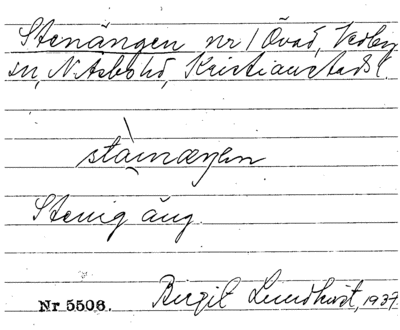 Stenängen nr 1 Övad, Vedby
sn, N. Åsbo hd, Kristianstads l.
Stenig äng.
Nr 5506. Birgit Lundqvist, 1937